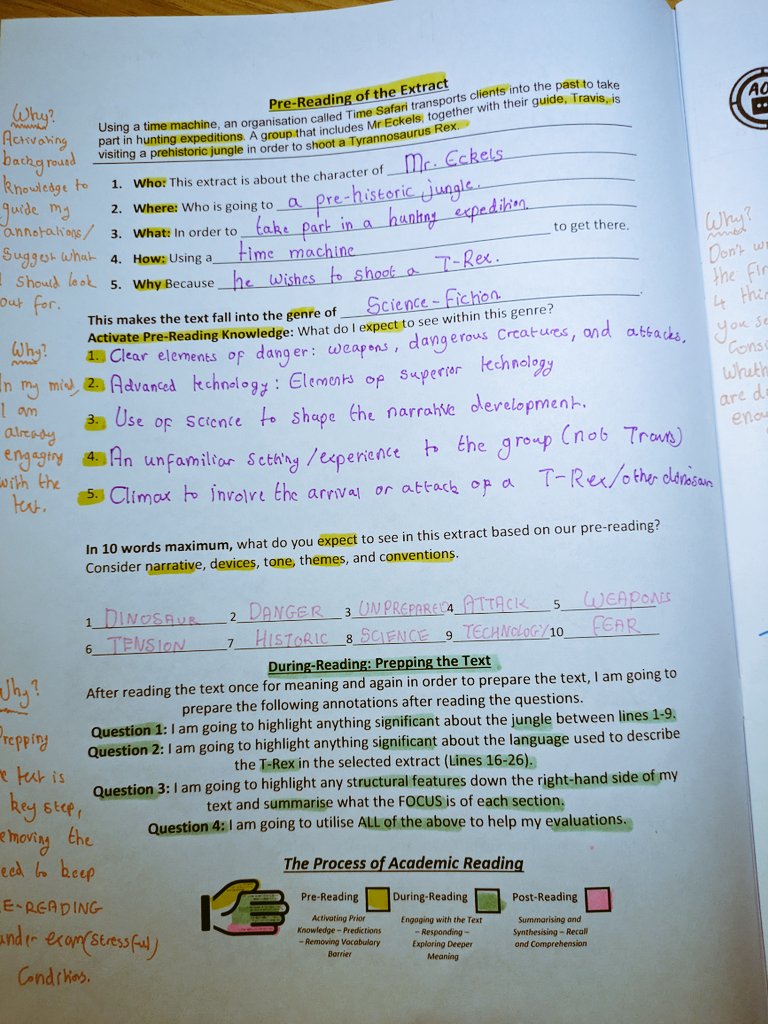 Pre-Reading of the Extract
Using a time machine, an organisation called Time Safari transports clients into the past to take
part in hunting expeditions. A group that includes Mr Eckels, together with their guide, Travis, is
visiting a prehistoric jungle in order to shoot a Tyrannosaurus Rex.
1. Who: This extract is about the character of Mr. Eckels
2. Where: Who is going to a pre-historic jungle.
3. What: In order to take part in a hunting expedition.
4. How: Using a time machine to get there.
5. Why Because he wishes to shoot a T-Rex.
This makes the text fall into the genre of Science-Fiction.
Activate Pre-Reading Knowledge: What do I expect to see within this genre?
1. Clear elements of danger: weapons, dangerous creatures, and attacks.
2. Advanced technology: Elements of superior technology
3. Use of science to shape the narrative development.
4. An unfamiliar setting/experience to the group (not Travis)
5. Climax to involve the arrival or attack of a T-Rex/other dinosaur
In 10 words maximum, what do you expect to see in this extract based on our pre-reading?
Consider narrative, devices, tone, themes, and conventions.
1 DINOSAUR 2 DANGER 3 UNPREPARED 4 ATTACK 5 WEAPONS
6 TENSION 7 HISTORIC 8 SCIENCE 9 TECHNOLOGY 10 FEAR
During-Reading: Prepping the Text
After reading the text once for meaning and again in order to prepare the text, I am going to
prepare the following annotations after reading the questions.
Question 1: I am going to highlight anything significant about the jungle between lines 1-9.
Question 2: I am going to highlight anything significant about the language used to describe
the T-Rex in the selected extract (Lines 16-26).
Question 3: I am going to highlight any structural features down the right-hand side of my
text and summarise what the FOCUS is of each section.
Question 4: I am going to utilise ALL of the above to help my evaluations.
The Process of Academic Reading
Pre-Reading
Activating Prior
Knowledge – Predictions
– Removing Vocabulary
Barrier
During-Reading
Engaging with the Text
– Responding –
Exploring Deeper
Meaning
Post-Reading
Summarising and
Synthesising – Recall
and Comprehension
Why?
Activating
background
knowledge to
guide my
annotations/
suggest what
I should look
out for.
Why?
In my mind,
I am
already
engaging
with the
text.
Why?
Prepping
text is
key step,
removing the
need to keep
RE-READING
under exam (stressful)
conditions.
AO
Why?
Don't
the
4
you
Whether
are